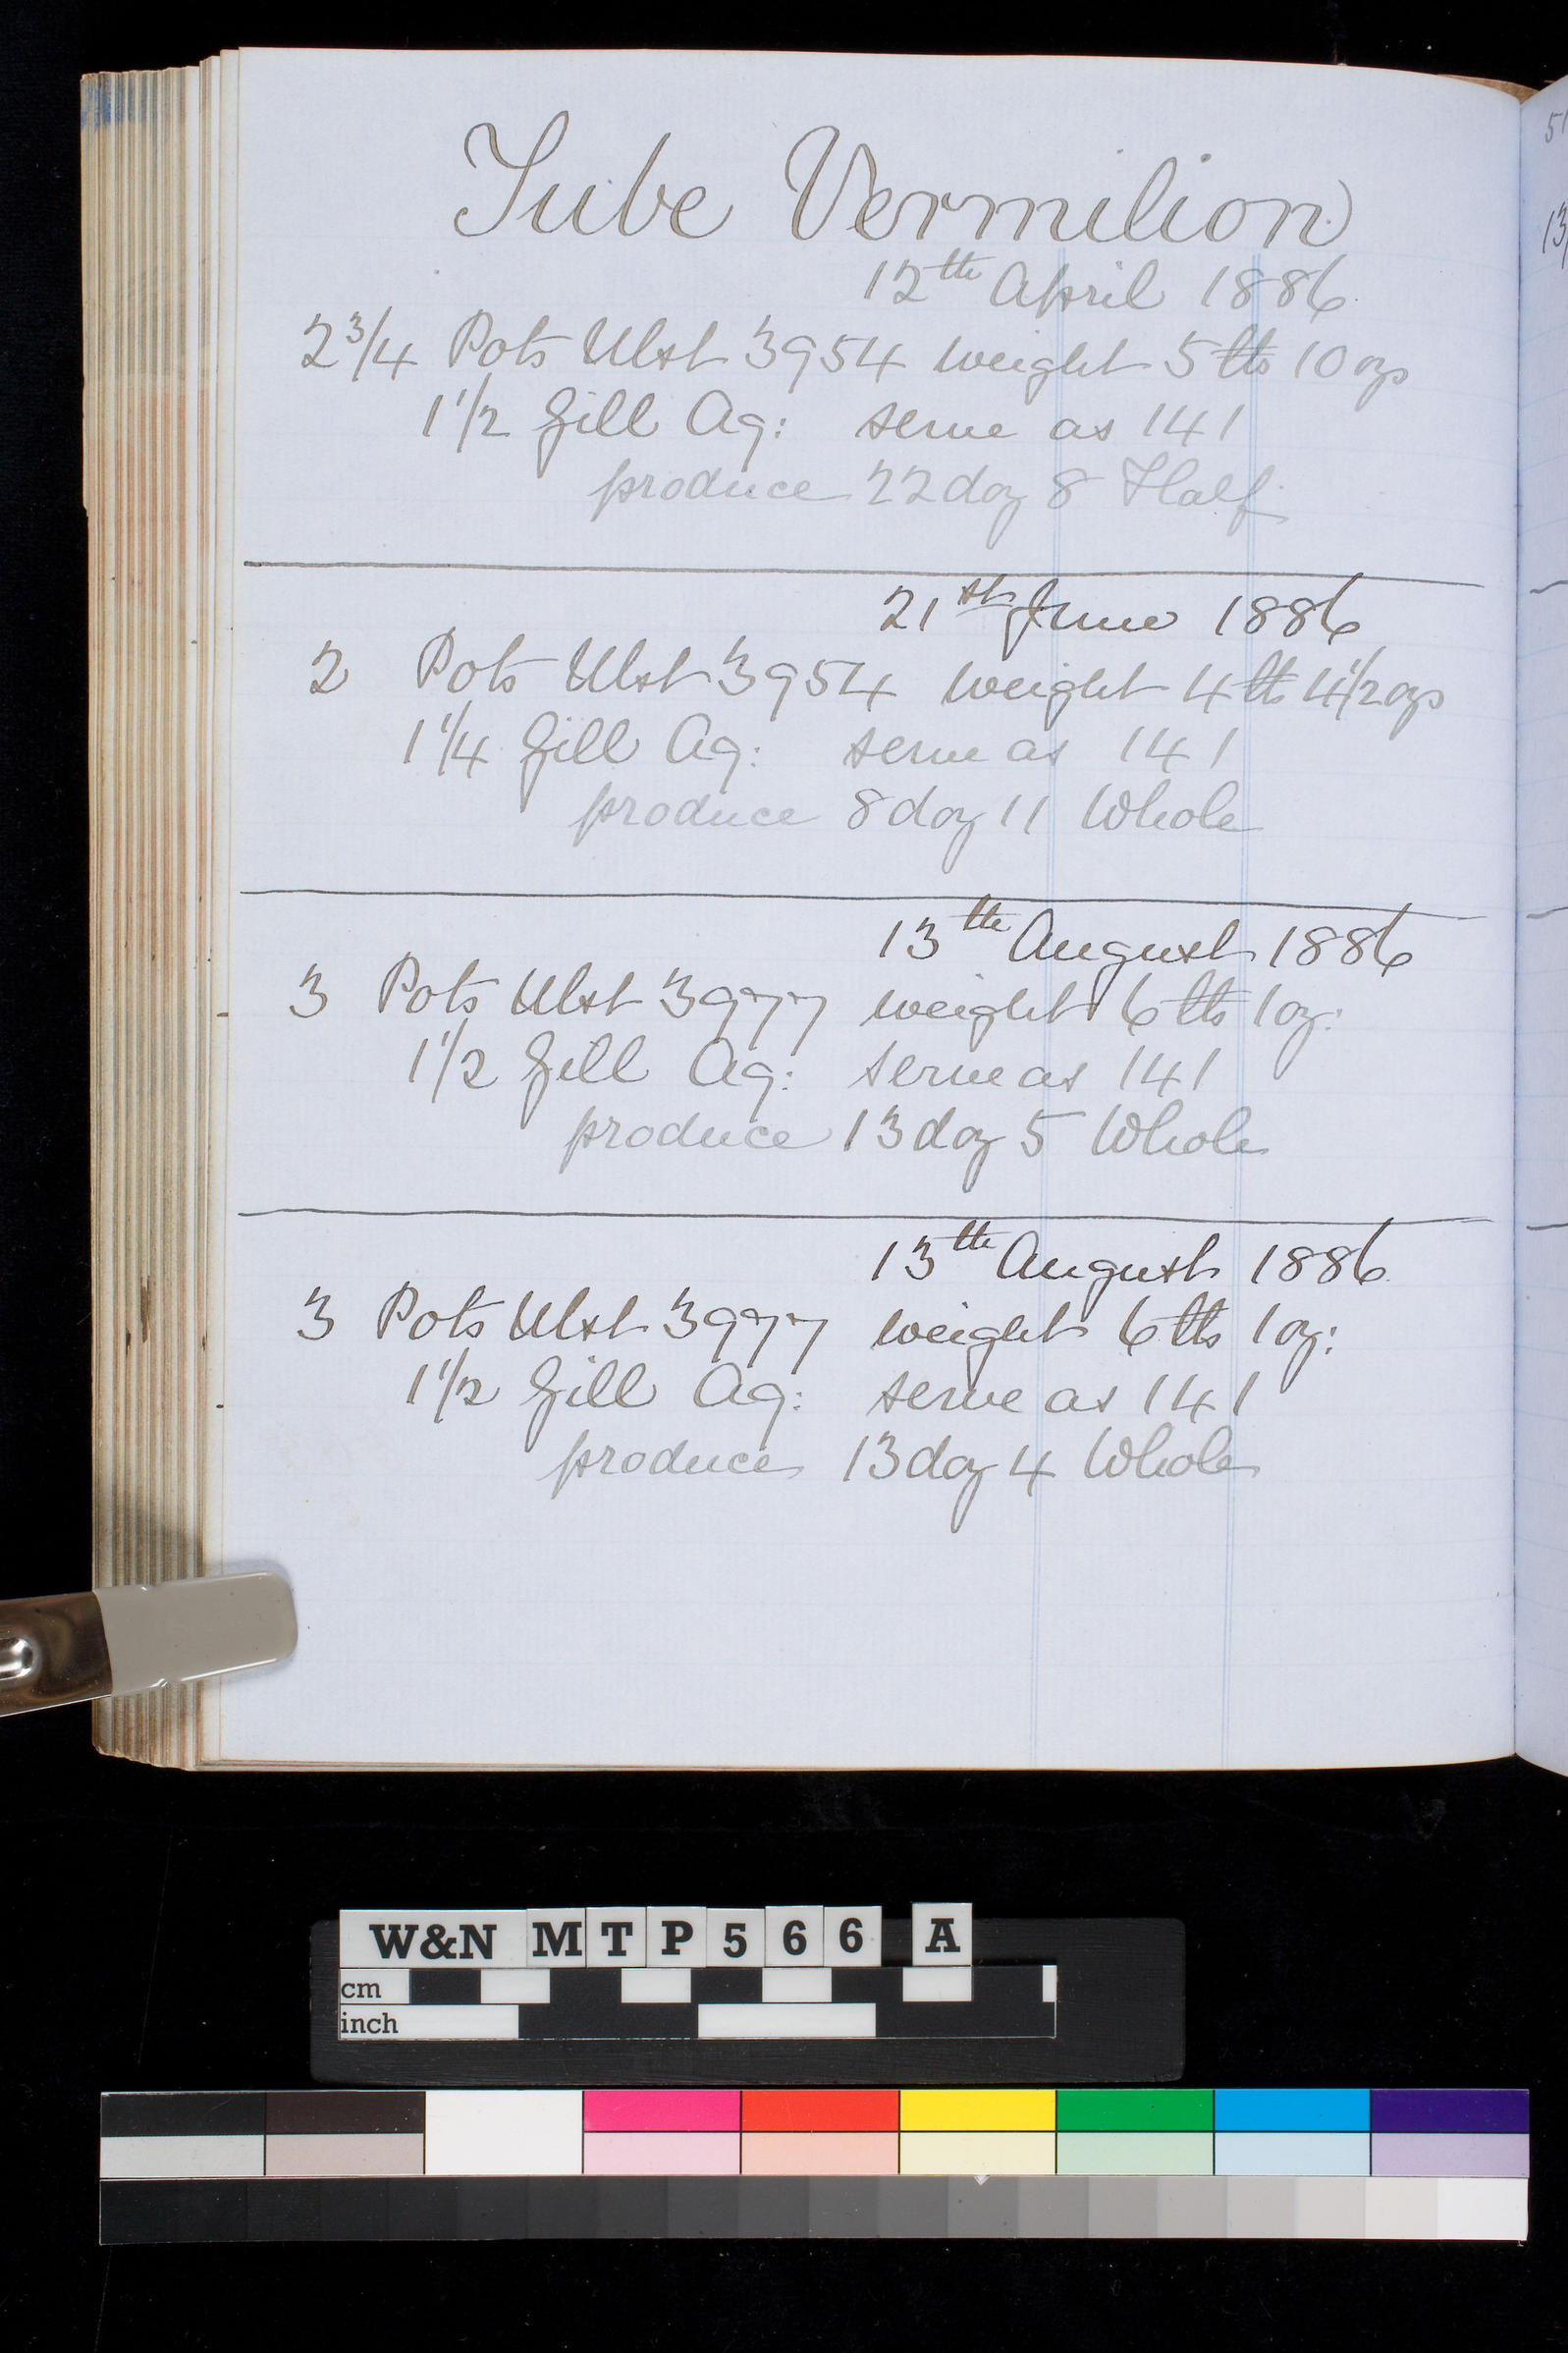 Tube Vermilion
12th April 1886
2 3/4 Pots Ulst 3954 weight 5 lbs 10 ozs
1 1/2 Gill Aq: serve as 141
produce 22 doz 8 Half
21st June 1886
2 Pots Ulst 3954 weight 4 lb 4 1/2 ozs
1 1/4 Gill Aq: serve as 141
produce 8 doz 11 Whole
13th August 1886
3 Pots Ulst 3977 weight 6 lbs 1 oz:
1 1/2 Gill Aq: serve as 141
produce 13 doz 5 Whole
13th August 1886
3 Pots Ulst 3977 weight 6 lbs 1 oz:
1 1/2 Gill Aq: serve as 141
produce 13 doz 4 Whole
W&N MTP566 A
cm
inch